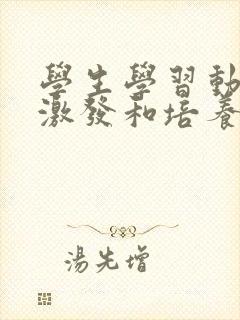 學生學習動
激發和培養
湯先增